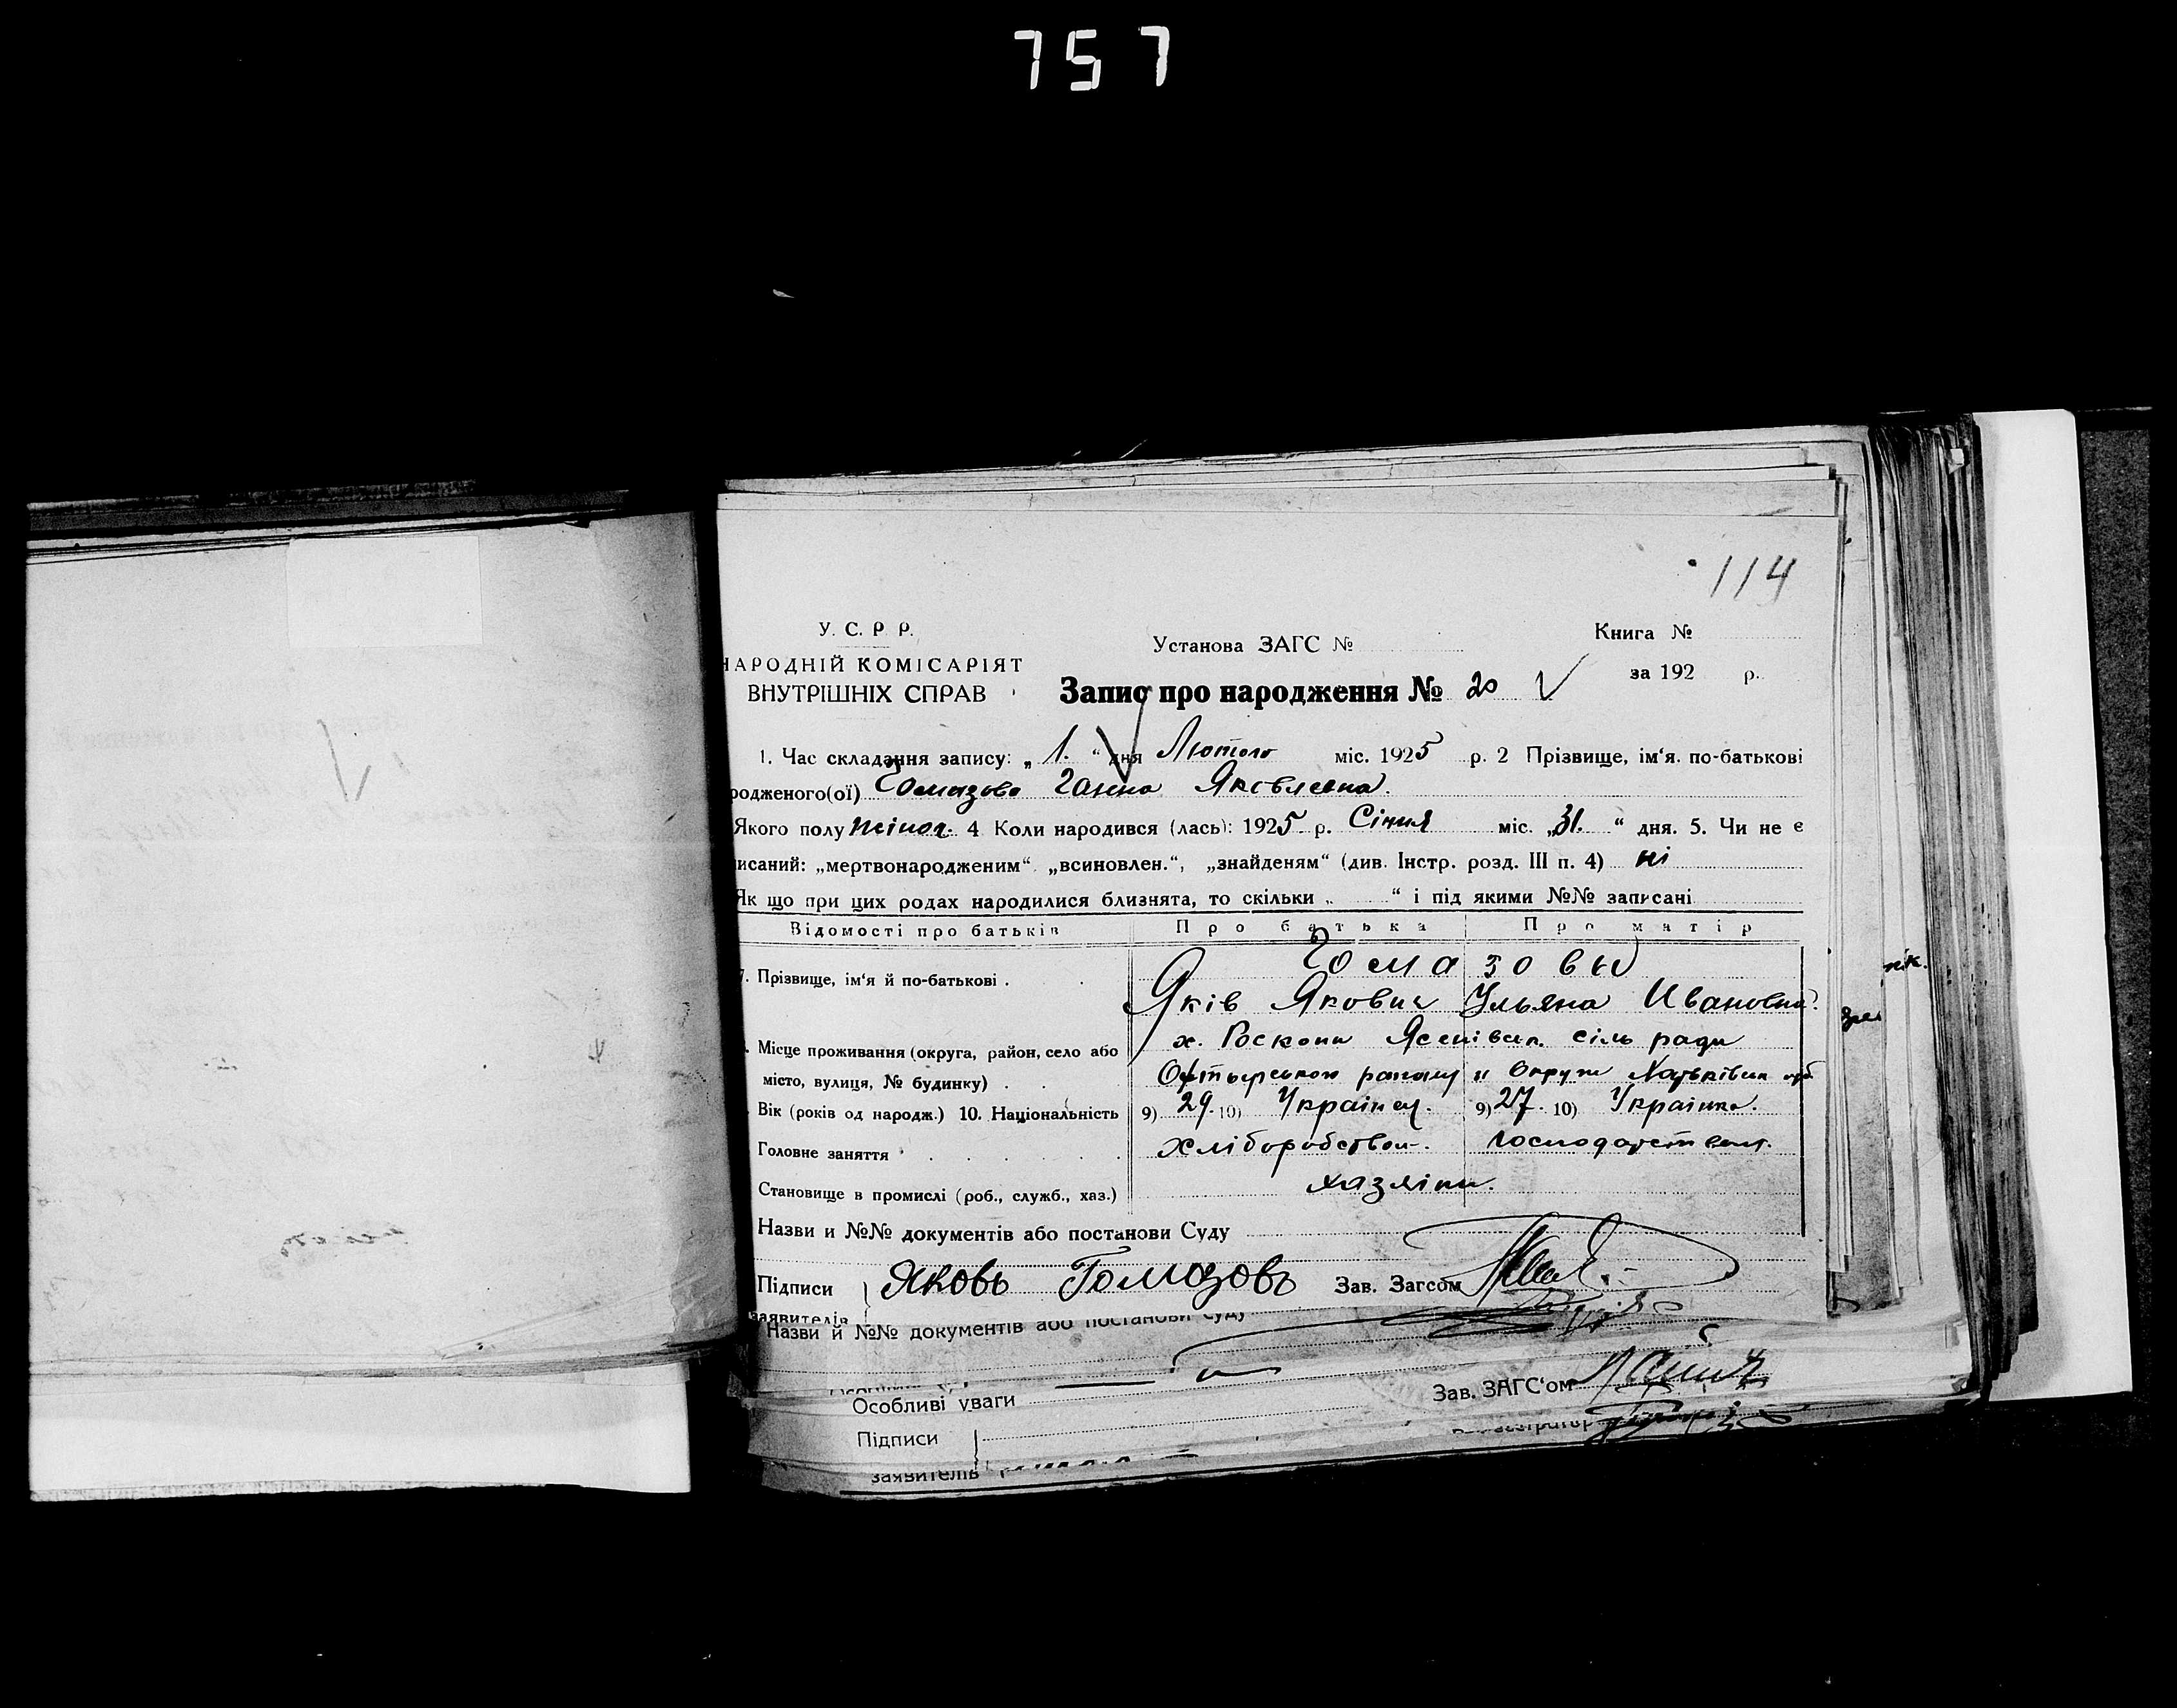 757
114
У. С. Р. Р.
НАРОДНІЙ КОМІСАРІЯТ
ВНУТРІШНІХ СПРАВ
Установа ЗАГС №
Книга №
за 192 р.
Запис про народження № 20
1. Час складання запису: „ 1. “ дня Лютого міс. 1925 р. 2 Прізвище, ім‘я. по-батькові
родженого(ої) Гомазова Ганна Яковлевна.
Якого полу жіноч. 4 Коли народився (лась): 1925 р. Січня міс. „31. “ дня. 5. Чи не є
писаний: „мертвонародженим“ „всиновлен.“, „знайденям“ (див. Інстр. розд. III п. 4) ні
Як що при цих родах народилися близнята, то скільки „ “ і під якими №№ записані
Відомості про батьків Про батька Про матір
7. Прізвище, ім‘я й по-батькові . Гомазовы
Яків Якович Ульяна Ивановна.
Місце проживання (округа, район, село або х. Роскопи сіль ради
місто, вулиця, № будинку) . району и Округи
Вік (років од народж.) 10. Національність 9) 29. 10) Українец. 9) 27. 10) Українка.
Головне заняття хліборобство. господарст
Становище в промислі (роб., служб., хаз.) хазяіни.
Назви и №№ документів або постанови Суду
Підписи Яковъ Гомозовъ Зав. Загсом
заявителів
Назви й №№ документів або постанови Суду
Особливі уваги Зав. ЗАГС‘ом
Підписи
заявителів